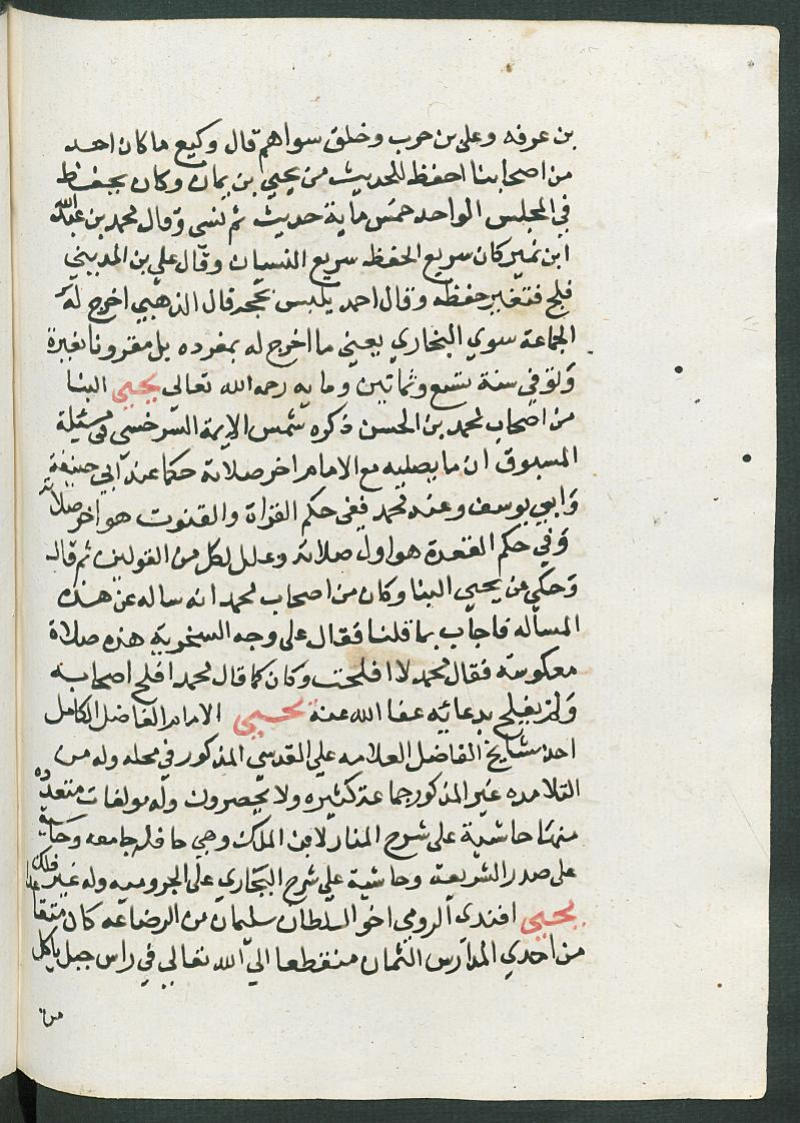 بن عرفه وعلي بن حرب وخلق سواهم قال وكيع ما كان احد
من اصحابنا احفظ للحديث من يحيي بن يمان وكان يحفظ
في المجلس الواحد خمس ماية حديث ثم نسي وقال محمد بن عبدالله
ابن نمير كان سريع الحفظ سريع النسيان وقال علي بن المديني
فلج فتغير حفظه وقال احمد يلبس بحجه قال الذهبي اخرج له
الجماعة سوي البخاري يعني ما اخرج له بمفرده بل مقرونا بغيرة
وتوفي سنة تسع وثمانين وماية رحمه الله تعالي يحيي البنا
من اصحاب محمد بن الحسن ذكره شمس الايمة السرخسي في مسئلة
المسبوق ان ما يصليه مع الامام اخر صلاته حكما عند ابي حنيفة
وابي يوسف وعند محمد ففي حكم القراة والقنوت هو اخر صلاته
وفي حكم القعدة هو اول صلاته وعلل لكل من القولين ثم قال
وحكي عن يحيي البنا وكان من اصحاب محمد انه ساله عن هذه
المسأله فاجاب بما قلنا فقال علي وجه السخرية هذه صلاة
معكوسه فقال محمد لا افلحت وكان كما قال محمد افلح اصحابه
ولم يفلح بدعائه عفا الله عنه يحيي الامام الفاضل الكامل
احد مشايخ الفاضل العلامه علي القدسي المذكور في محله وله من
التلامده غير المذكور جماعة كثيره ولا يحصرون وله مولفات متعدده
منها حاشية علي شرح المنار لابن الملك وهي حافله جامعه وحاشية
علي صدر الشريعه وحاشية علي شرح البجاري علي الجروميه وله غير ذلك
يحيي افندي الرومي اخو السلطان سليمان من الرضاعه كان متقاعدا
من احدي المدارس الثمان منقطعا الي الله تعالي في راس جبل ياكل
من